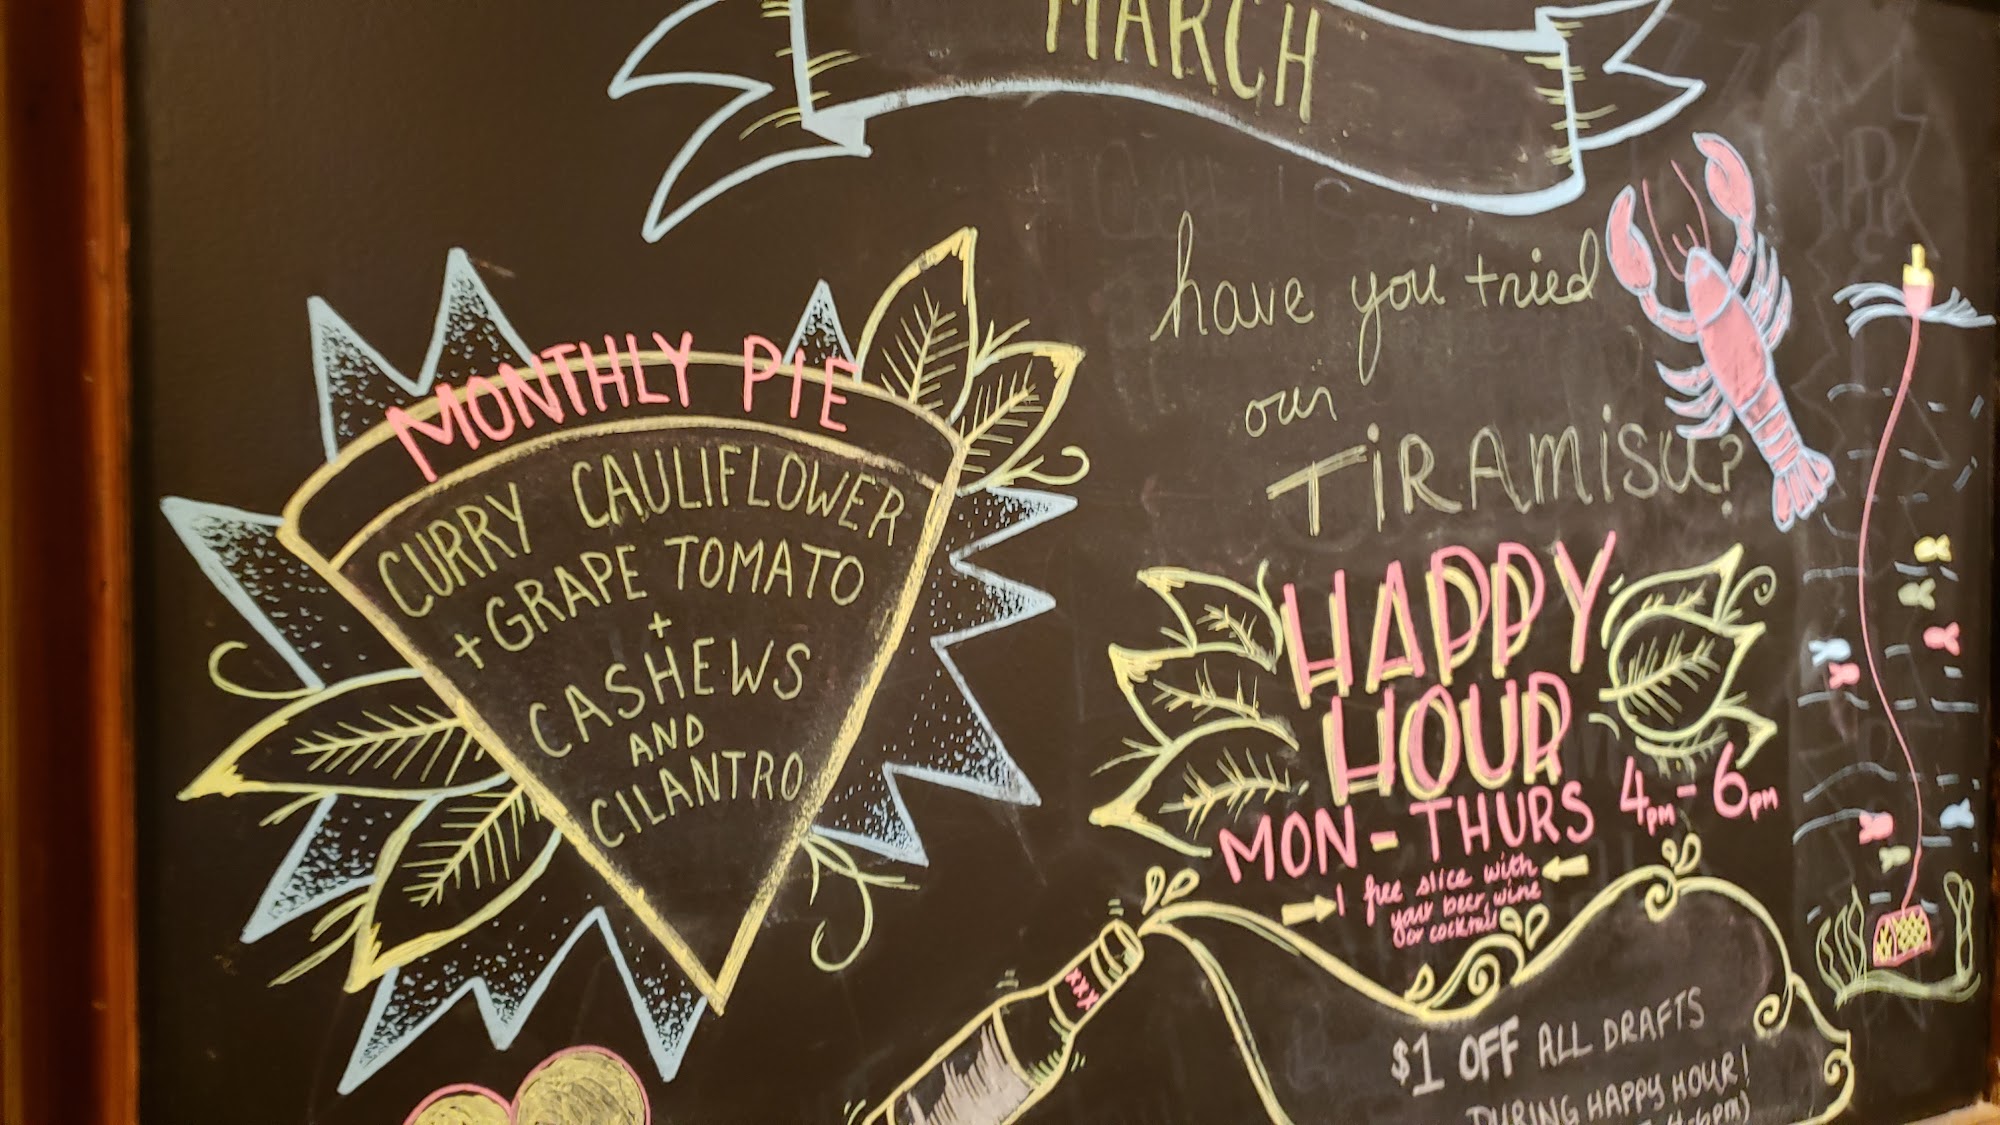 MARCH
MONTHLY PIE
CURRY CAULIFLOWER
+ GRAPE TOMATO
+
CASHEWS
AND
CILANTRO
have you tried
our
TiRAMiSU?
HAPPY
HOUR
MON - THURS 4pm - 6pm
1 free slice with
your beer, wine
or cocktail
XXX
$1 OFF ALL DRAFTS
DURING HAPPY HOUR!
4-6PM)